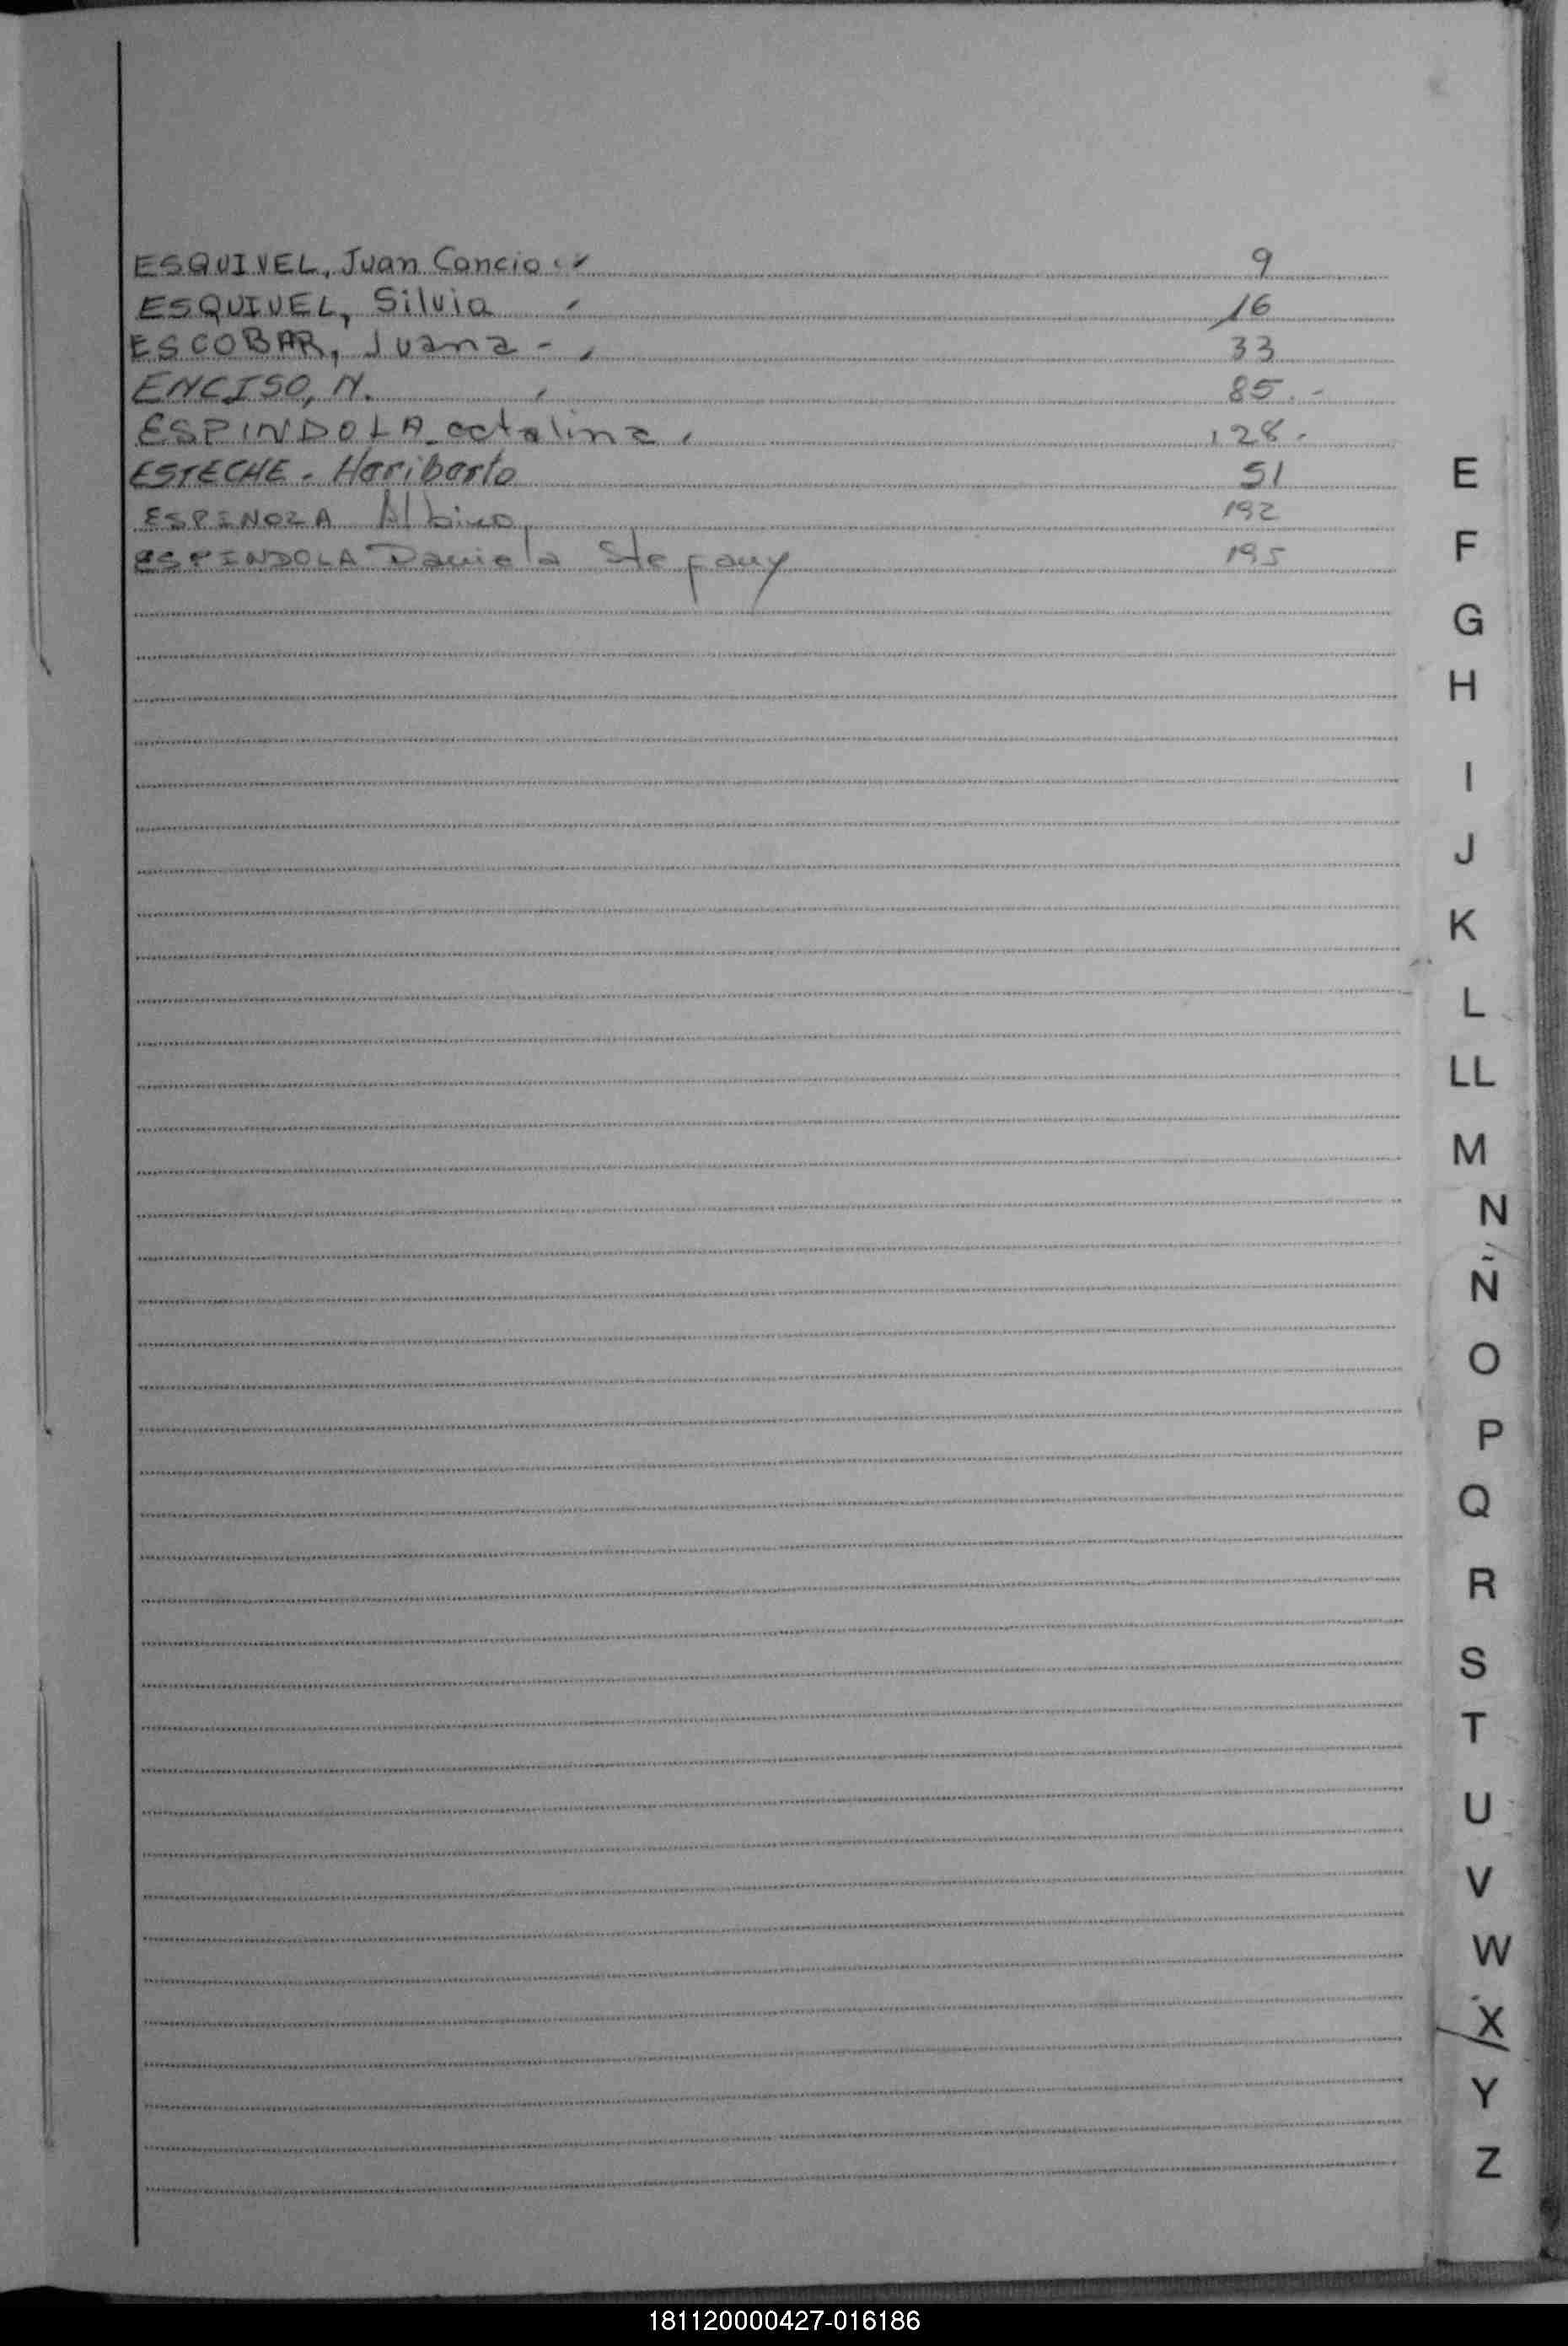 ESQUIVEL, Juan Cancio 9
ESQUIVEL, Silvia 16
ESCOBAR, Juana - 33
ENCISO, N. 85.-
ESPINDOLA catalina 128.
ESTECHE - Heriberto 51
ESPINOZA Albino 192
ESPINDOLA Daniela Stefany 195
E
F
G
H
I
J
K
L
LL
M
N
Ñ
O
P
Q
R
S
T
U
V
W
X
Y
Z
181120000427-016186